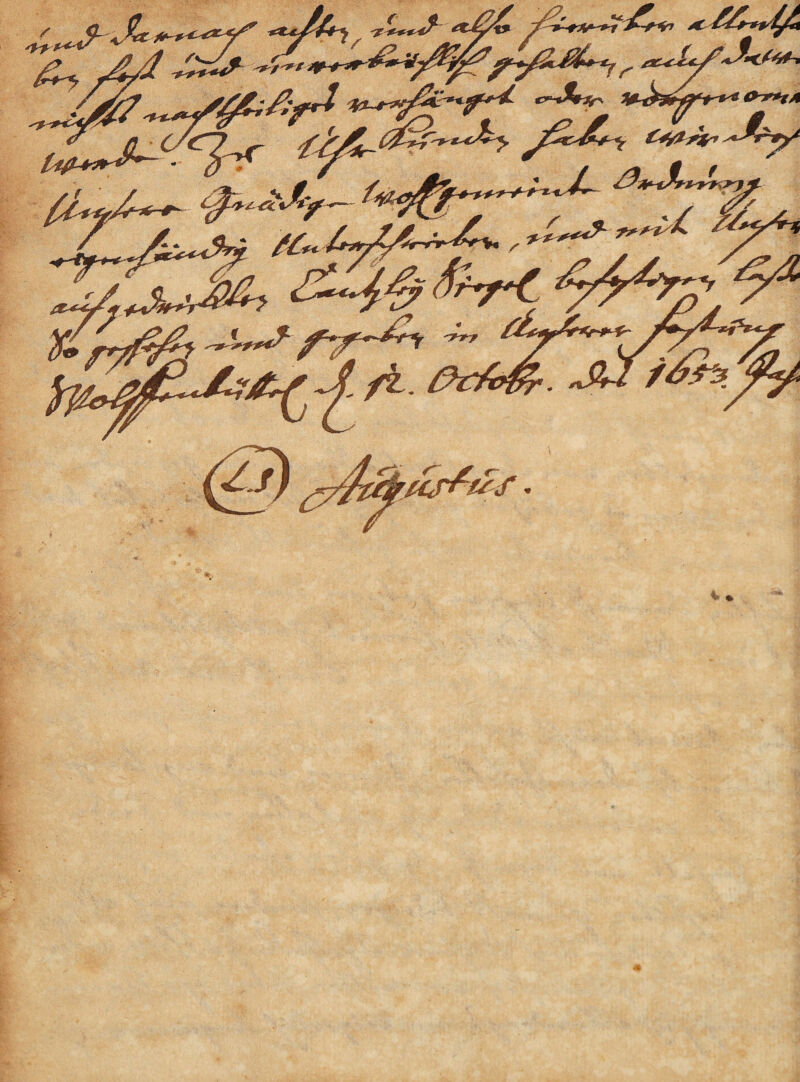 und darnach achten, und also hierüber allentha
ben fest und unverbrüchlich gehalten, auch dawi
nichts nachtheiliges verhänget oder vorgenom̅e
werde. Zu Uhrkunden haben wir dies
Unsere Gnädige Wohlgemeinte Ordnung
eigenhändig Unterschrieben, und mit Unser
aufgedrückten Cantzley Siegel befestigen laße
So geschehen und gegeben in Unserer Festung
Wolffenbüttel d. 12. Octobr. des 1653. Jah
L.S Augustus.